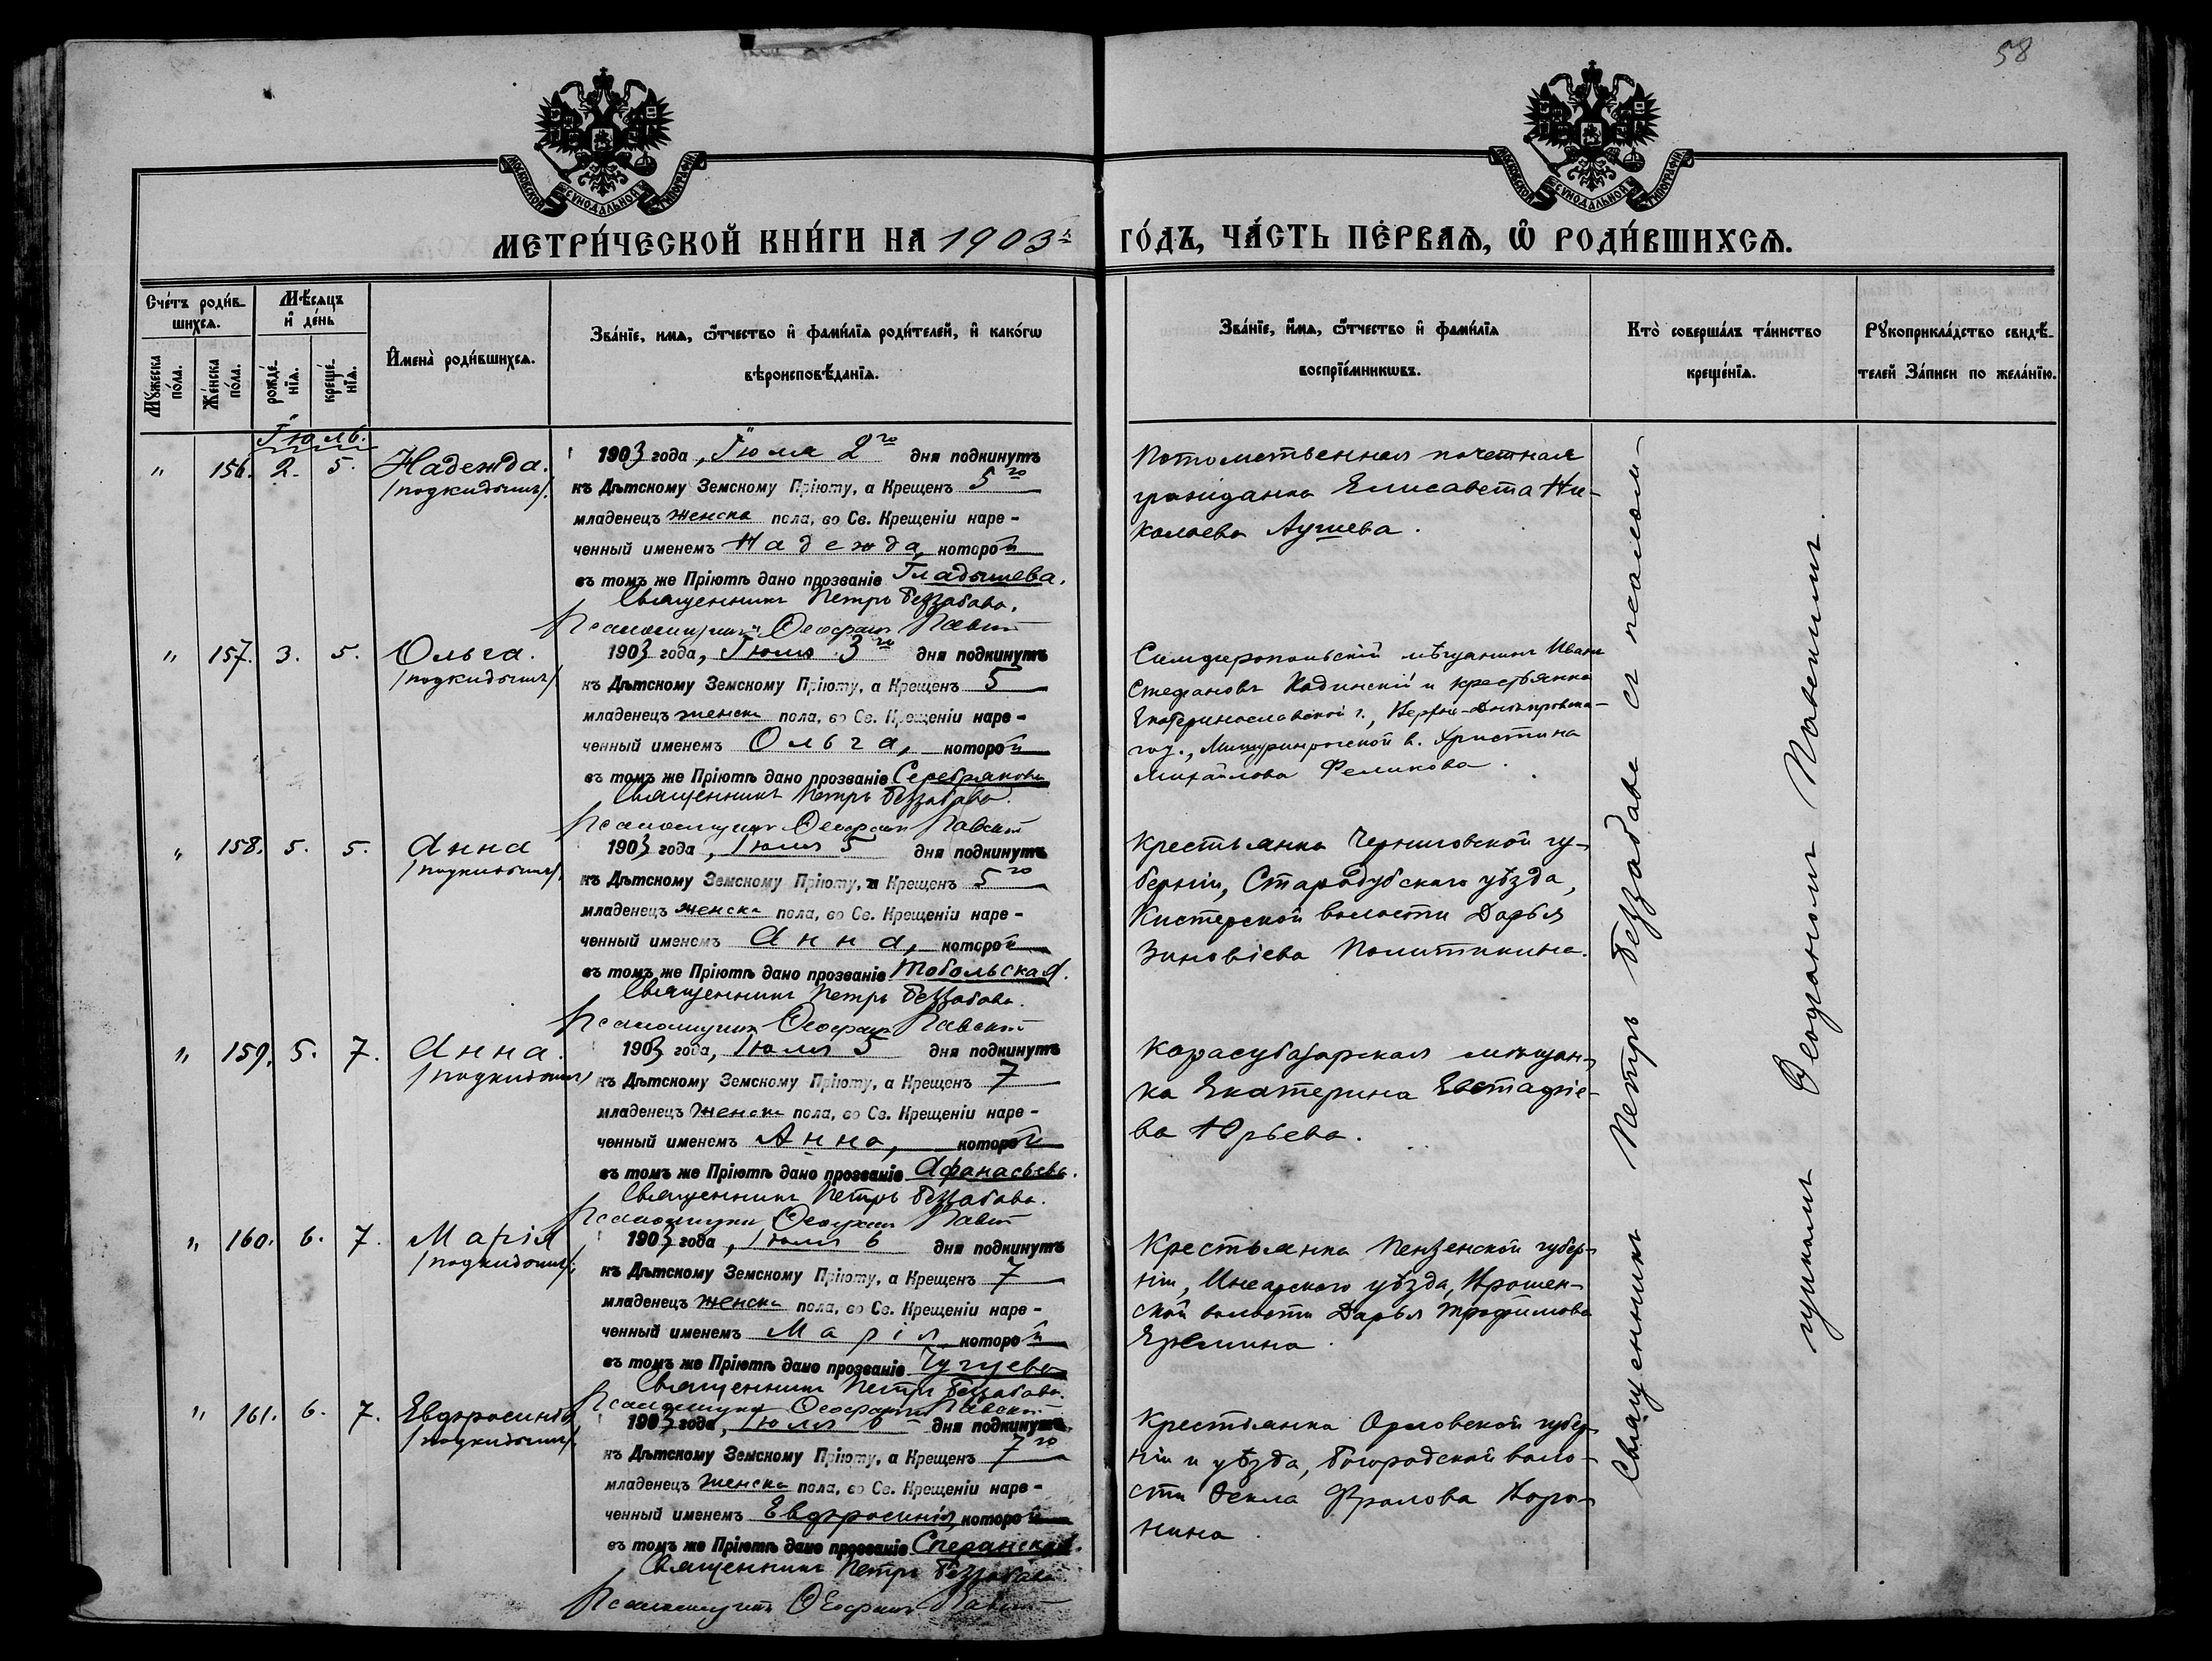 58
МОСКОВСКОЙ СѴНОДАЛЬНОЙ ТИПОГРАФІИ
МОСКОВСКОЙ СѴНОДАЛЬНОЙ ТИПОГРАФІИ
МЕТРИ́ЧЕСКОЙ КНИ́ГИ НА 1903й ГО́ДЪ, ЧА́СТЬ ПЕ́РВАѦ, Ѽ РОДИ́ВШИХСѦ.
Сче́тъ роди́в-
шихсѧ.
Мѣ́сѧцъ
и҆ де́нь
Мꙋ́жеска
по́ла.
Же́нска
по́ла.
рожде́-
нїѧ.
креще́-
нїѧ.
И҆мена̀ роди́вшихсѧ.
Зва́нїе, имѧ, ѻ҆́тчество и҆ фами́лїѧ роди́телей, и҆ како́гѡ
вѣроисповѣ́данїѧ.
Зва́нїе, и҆́мѧ, ѻ҆́тчество и҆ фами́лїѧ
воспрїе́мникѡвъ.
Кто̀ соверша́лъ та́инство
креще́нїѧ.
Рꙋкоприкла́дство свидѣ́-
телей За́писи по жела́нїю.
Іюль.
" 156. 2. 5. Надежда.
/подкидышъ/.
1903 года, Іюля 2го дня подкинутъ
къ Дѣтскому Земскому Пріюту, а Крещенъ 5го
младенецъ женска пола, во Св. Крещеніи наре-
ченный именемъ Надежда, которой
въ томъ же Пріютѣ дано прозваніе Гладышева.
Священникъ Петръ Беззабава.
Псаломщикъ Ѳеофанъ
Потомственная почетная
гражданка Елисавета Ни-
колаева
" 157. 3. 5. Ольга.
/подкидышъ/
1903 года, Іюля 3го дня подкинутъ
къ Дѣтскому Земскому Пріюту, а Крещенъ 5
младенецъ женска пола, во Св. Крещеніи наре-
ченный именемъ Ольга, которой
въ томъ же Пріютѣ дано прозваніе Серебрякова
Священникъ Петръ Беззабава.
Псаломщикъ Ѳеофанъ Павскій
Симферопольскій мѣщанинъ Иванъ
Стефановъ и крестьянка
Екатеринославской г., Верхне-Днѣпровска-
го у., Мишуринрогской в. Христина
Михайлова
" 158. 5. 5. Анна
/подкидышъ/.
1903 года, Іюля 5 дня подкинутъ
къ Дѣтскому Земскому Пріюту, а Крещенъ 5го
младенецъ женска пола, во Св. Крещеніи наре-
ченный именемъ Анна, которой
въ томъ же Пріютѣ дано прозваніе Тобольская.
Священникъ Петръ Беззабава.
Псаломщикъ Ѳеофанъ Павскій
Крестьянка Черниговской гу-
берніи, Стародубскаго уѣзда,
Кистерской волости Дарья
Зиновіева Политикина.
" 159. 5. 7. Анна.
/подкидышъ/
1903 года, Іюля 5 дня подкинутъ
къ Дѣтскому Земскому Пріюту, а Крещенъ 7
младенецъ женска пола, во Св. Крещеніи наре-
ченный именемъ Анна, которой
въ томъ же Пріютѣ дано прозваніе Афанасьева.
Священникъ Петръ Беззабава.
Псаломщикъ Ѳеофанъ
Карасубазарская мѣщан-
ка Екатерина Евстафіе-
ва Юрьева.
" 160. 6. 7. Марія
/подкидышъ/.
1903 года, Іюля 6 дня подкинутъ
къ Дѣтскому Земскому Пріюту, а Крещенъ 7
младенецъ женска пола, во Св. Крещеніи наре-
ченный именемъ Марія которой
въ томъ же Пріютѣ дано прозваніе Чугуева
Священникъ Петръ Беззабава.
Псаломщикъ Ѳеофанъ Павскій
Крестьянка Пензенской губер-
ніи, Инсарскаго уѣзда,
ской волости Дарья Трофимова
Еремина.
" 161. 6. 7. Евфросинія
/подкидышъ/.
1903 года, Іюля 6 дня подкинутъ
къ Дѣтскому Земскому Пріюту, а Крещенъ 7го
младенецъ женска пола, во Св. Крещеніи наре-
ченный именемъ Евфросинія, которой
въ томъ же Пріютѣ дано прозваніе Сперанская.
Священникъ Петръ Беззабава
Псаломщикъ Ѳеофанъ
Крестьянка Орловской губер-
ніи и уѣзда, Богородской воло-
сти Ѳекла Фролова
Священникъ Петръ Беззабава съ псалом-
щикомъ Ѳеофаномъ Павскимъ.